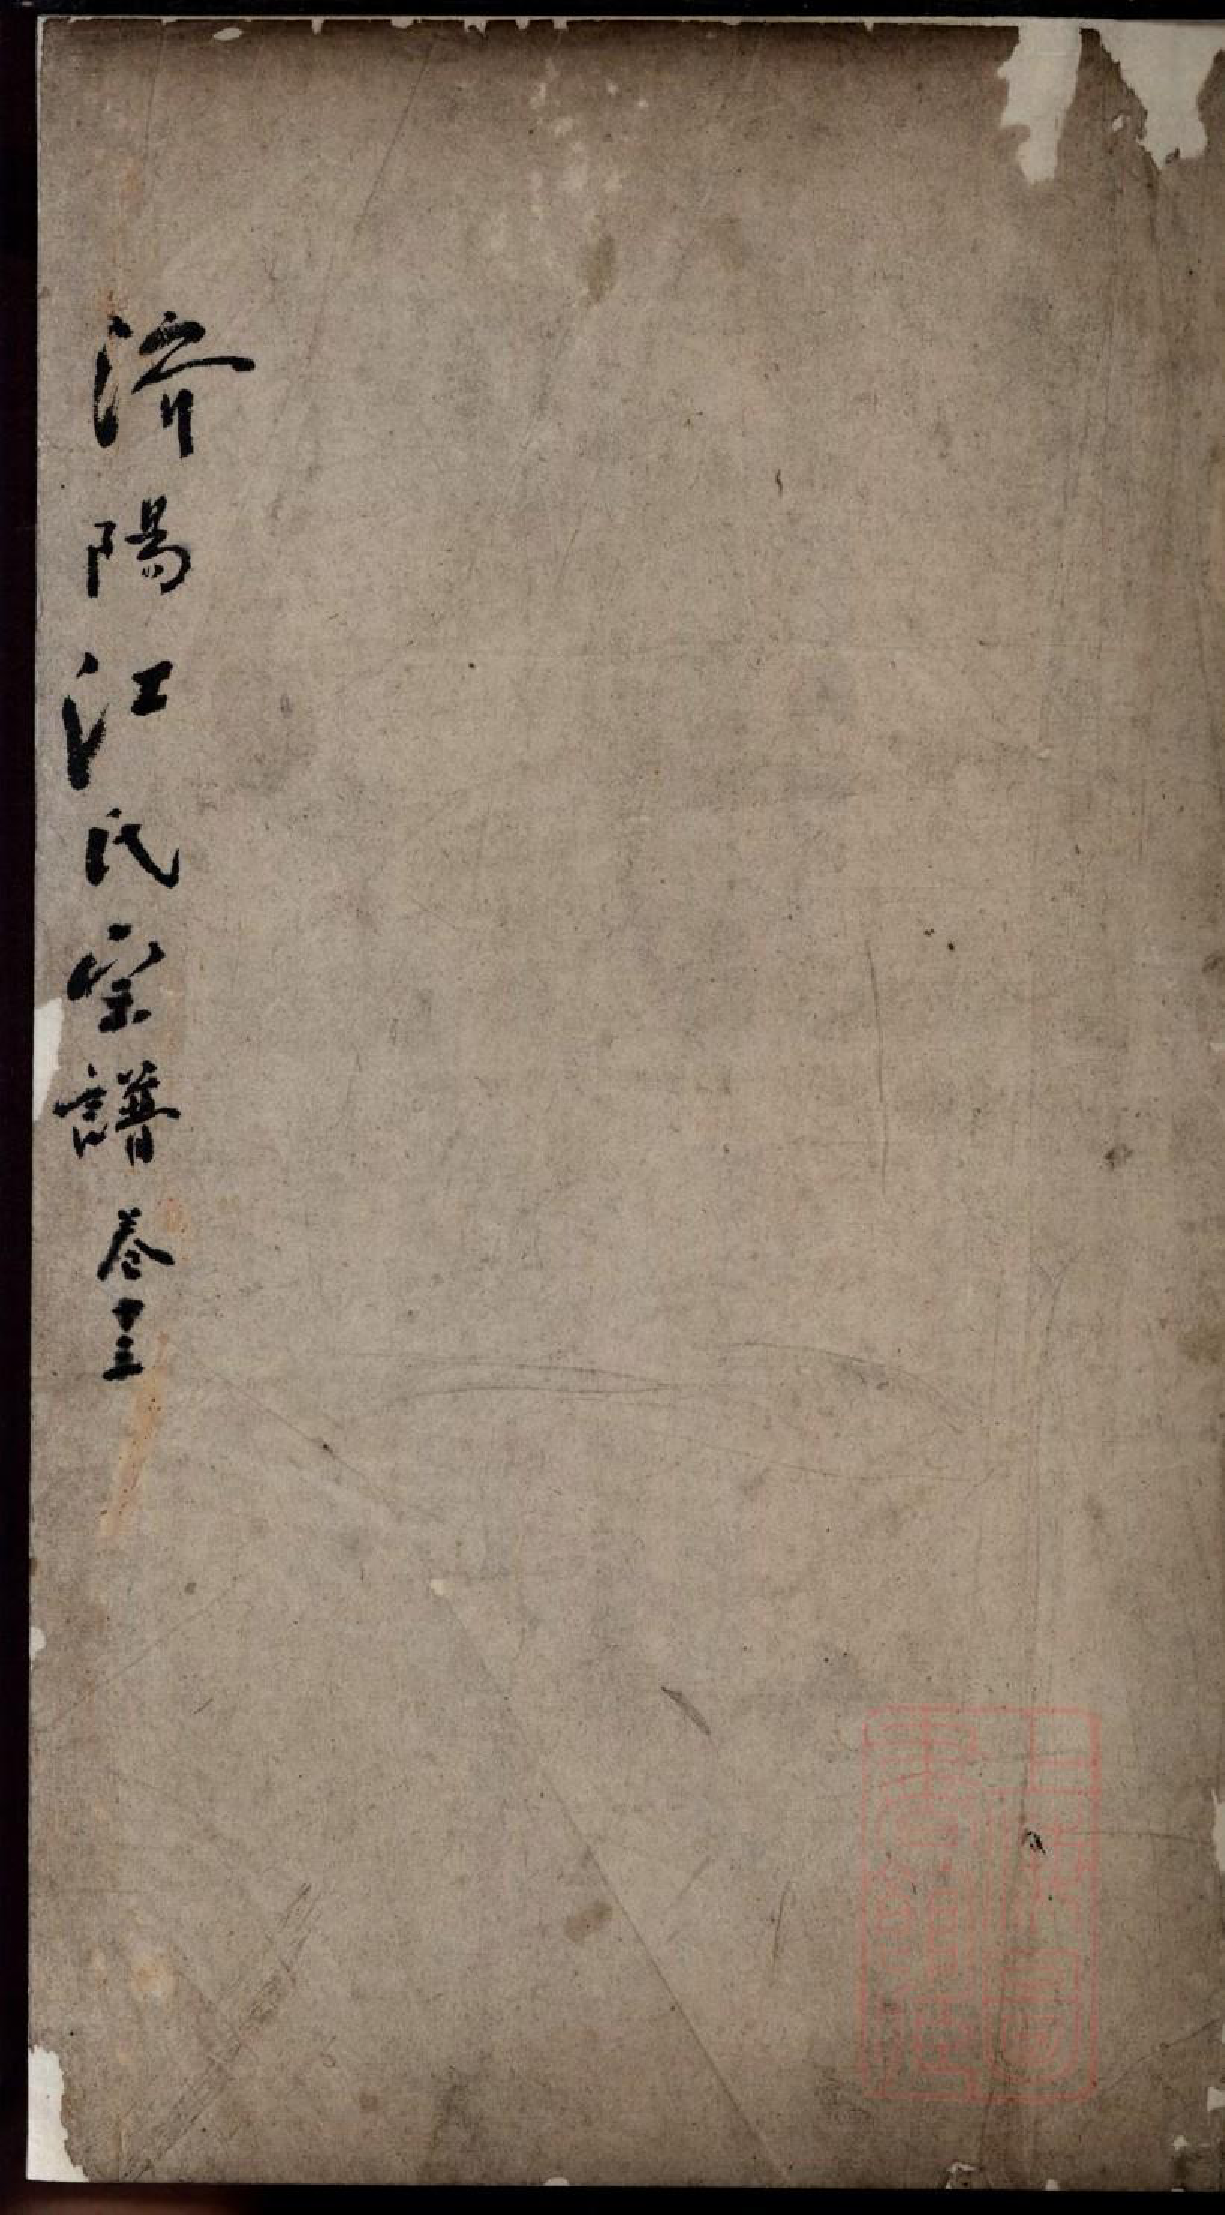 濟陽江氏宗譜卷十三